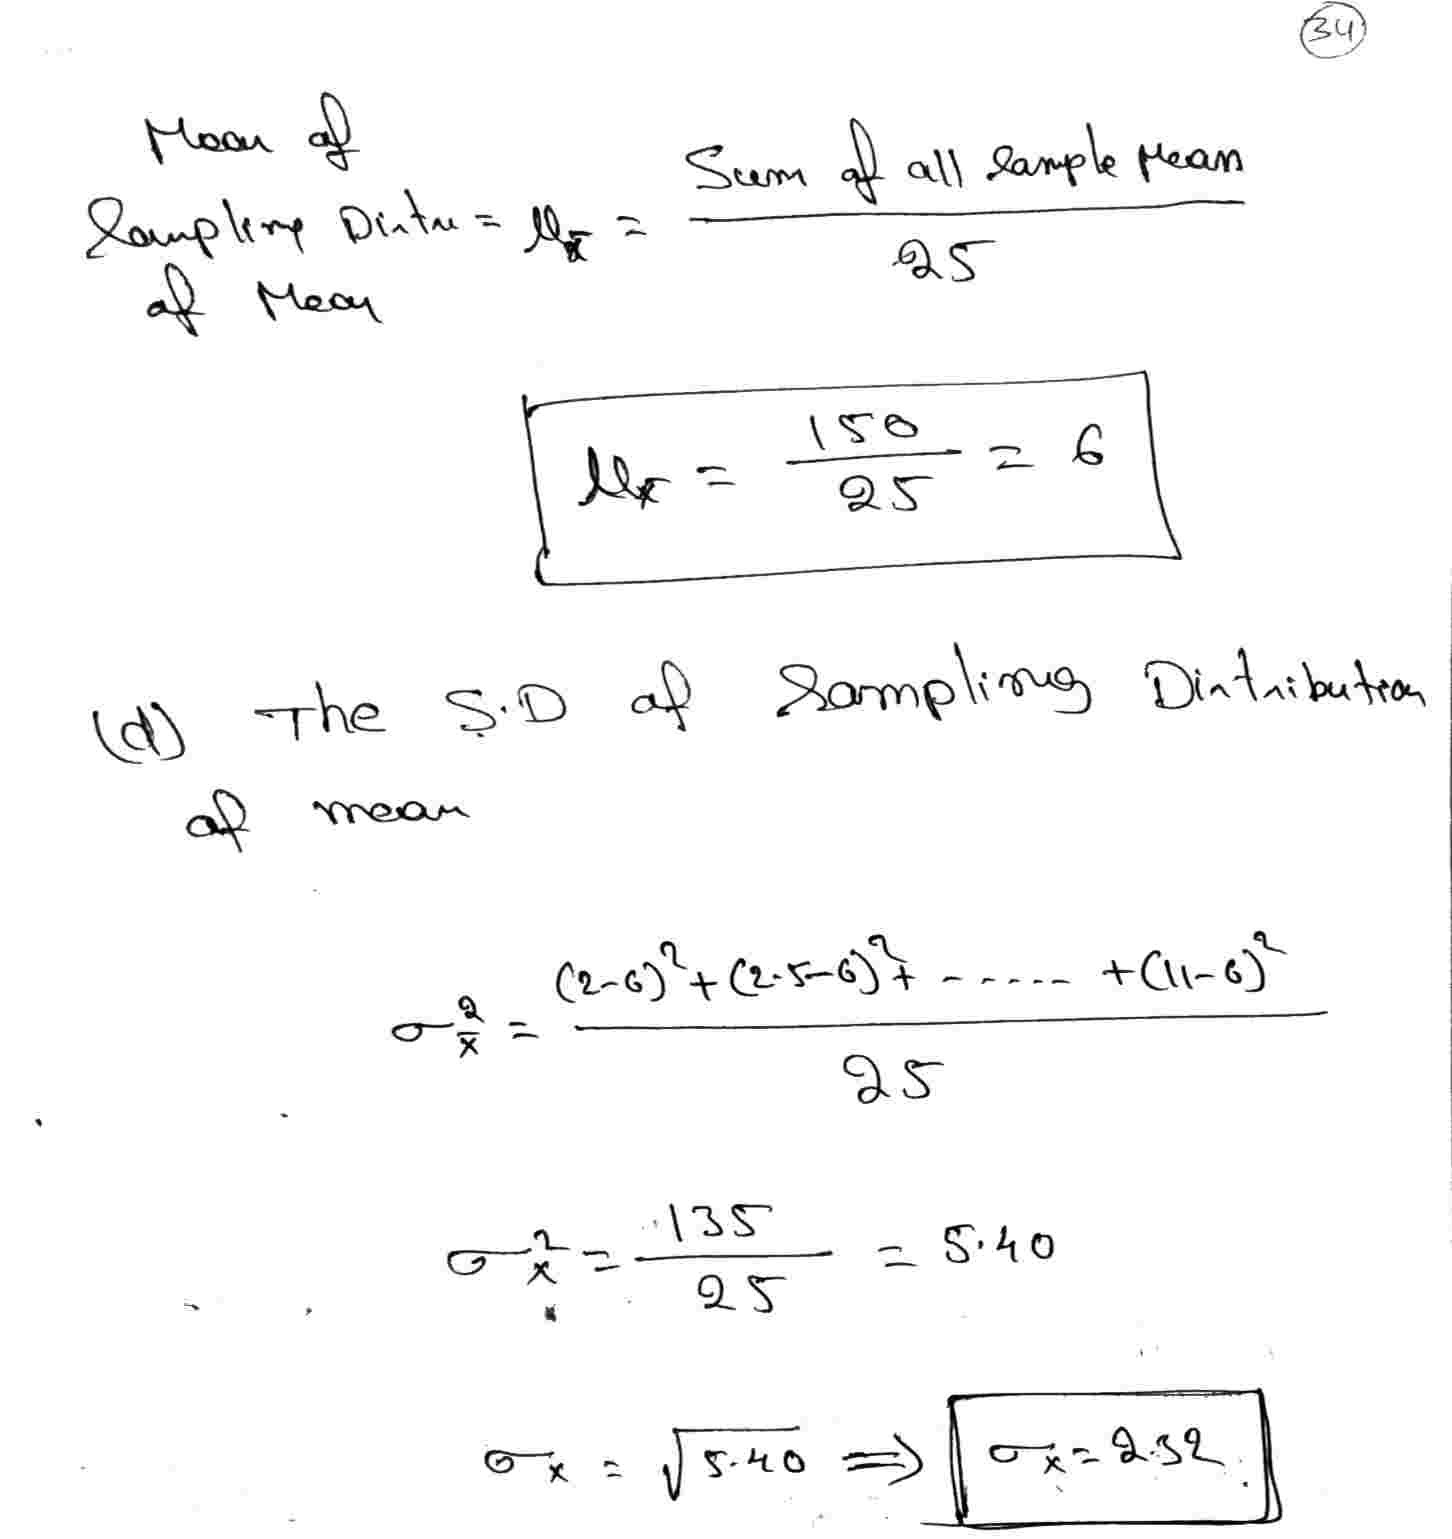 34
Mean of
Sampling Distri = μx̄ = Sum of all sample Mean
25
of Mean
μx̄ = 150/25 = 6
(d) The S.D of Sampling Distribution
of mean
σ²x̄ = (2-6)² + (2.5-6)² + ...... + (11-6)²
25
σ²x = 135/25 = 5.40
σx = √5.40 ⇒ σx = 2.32